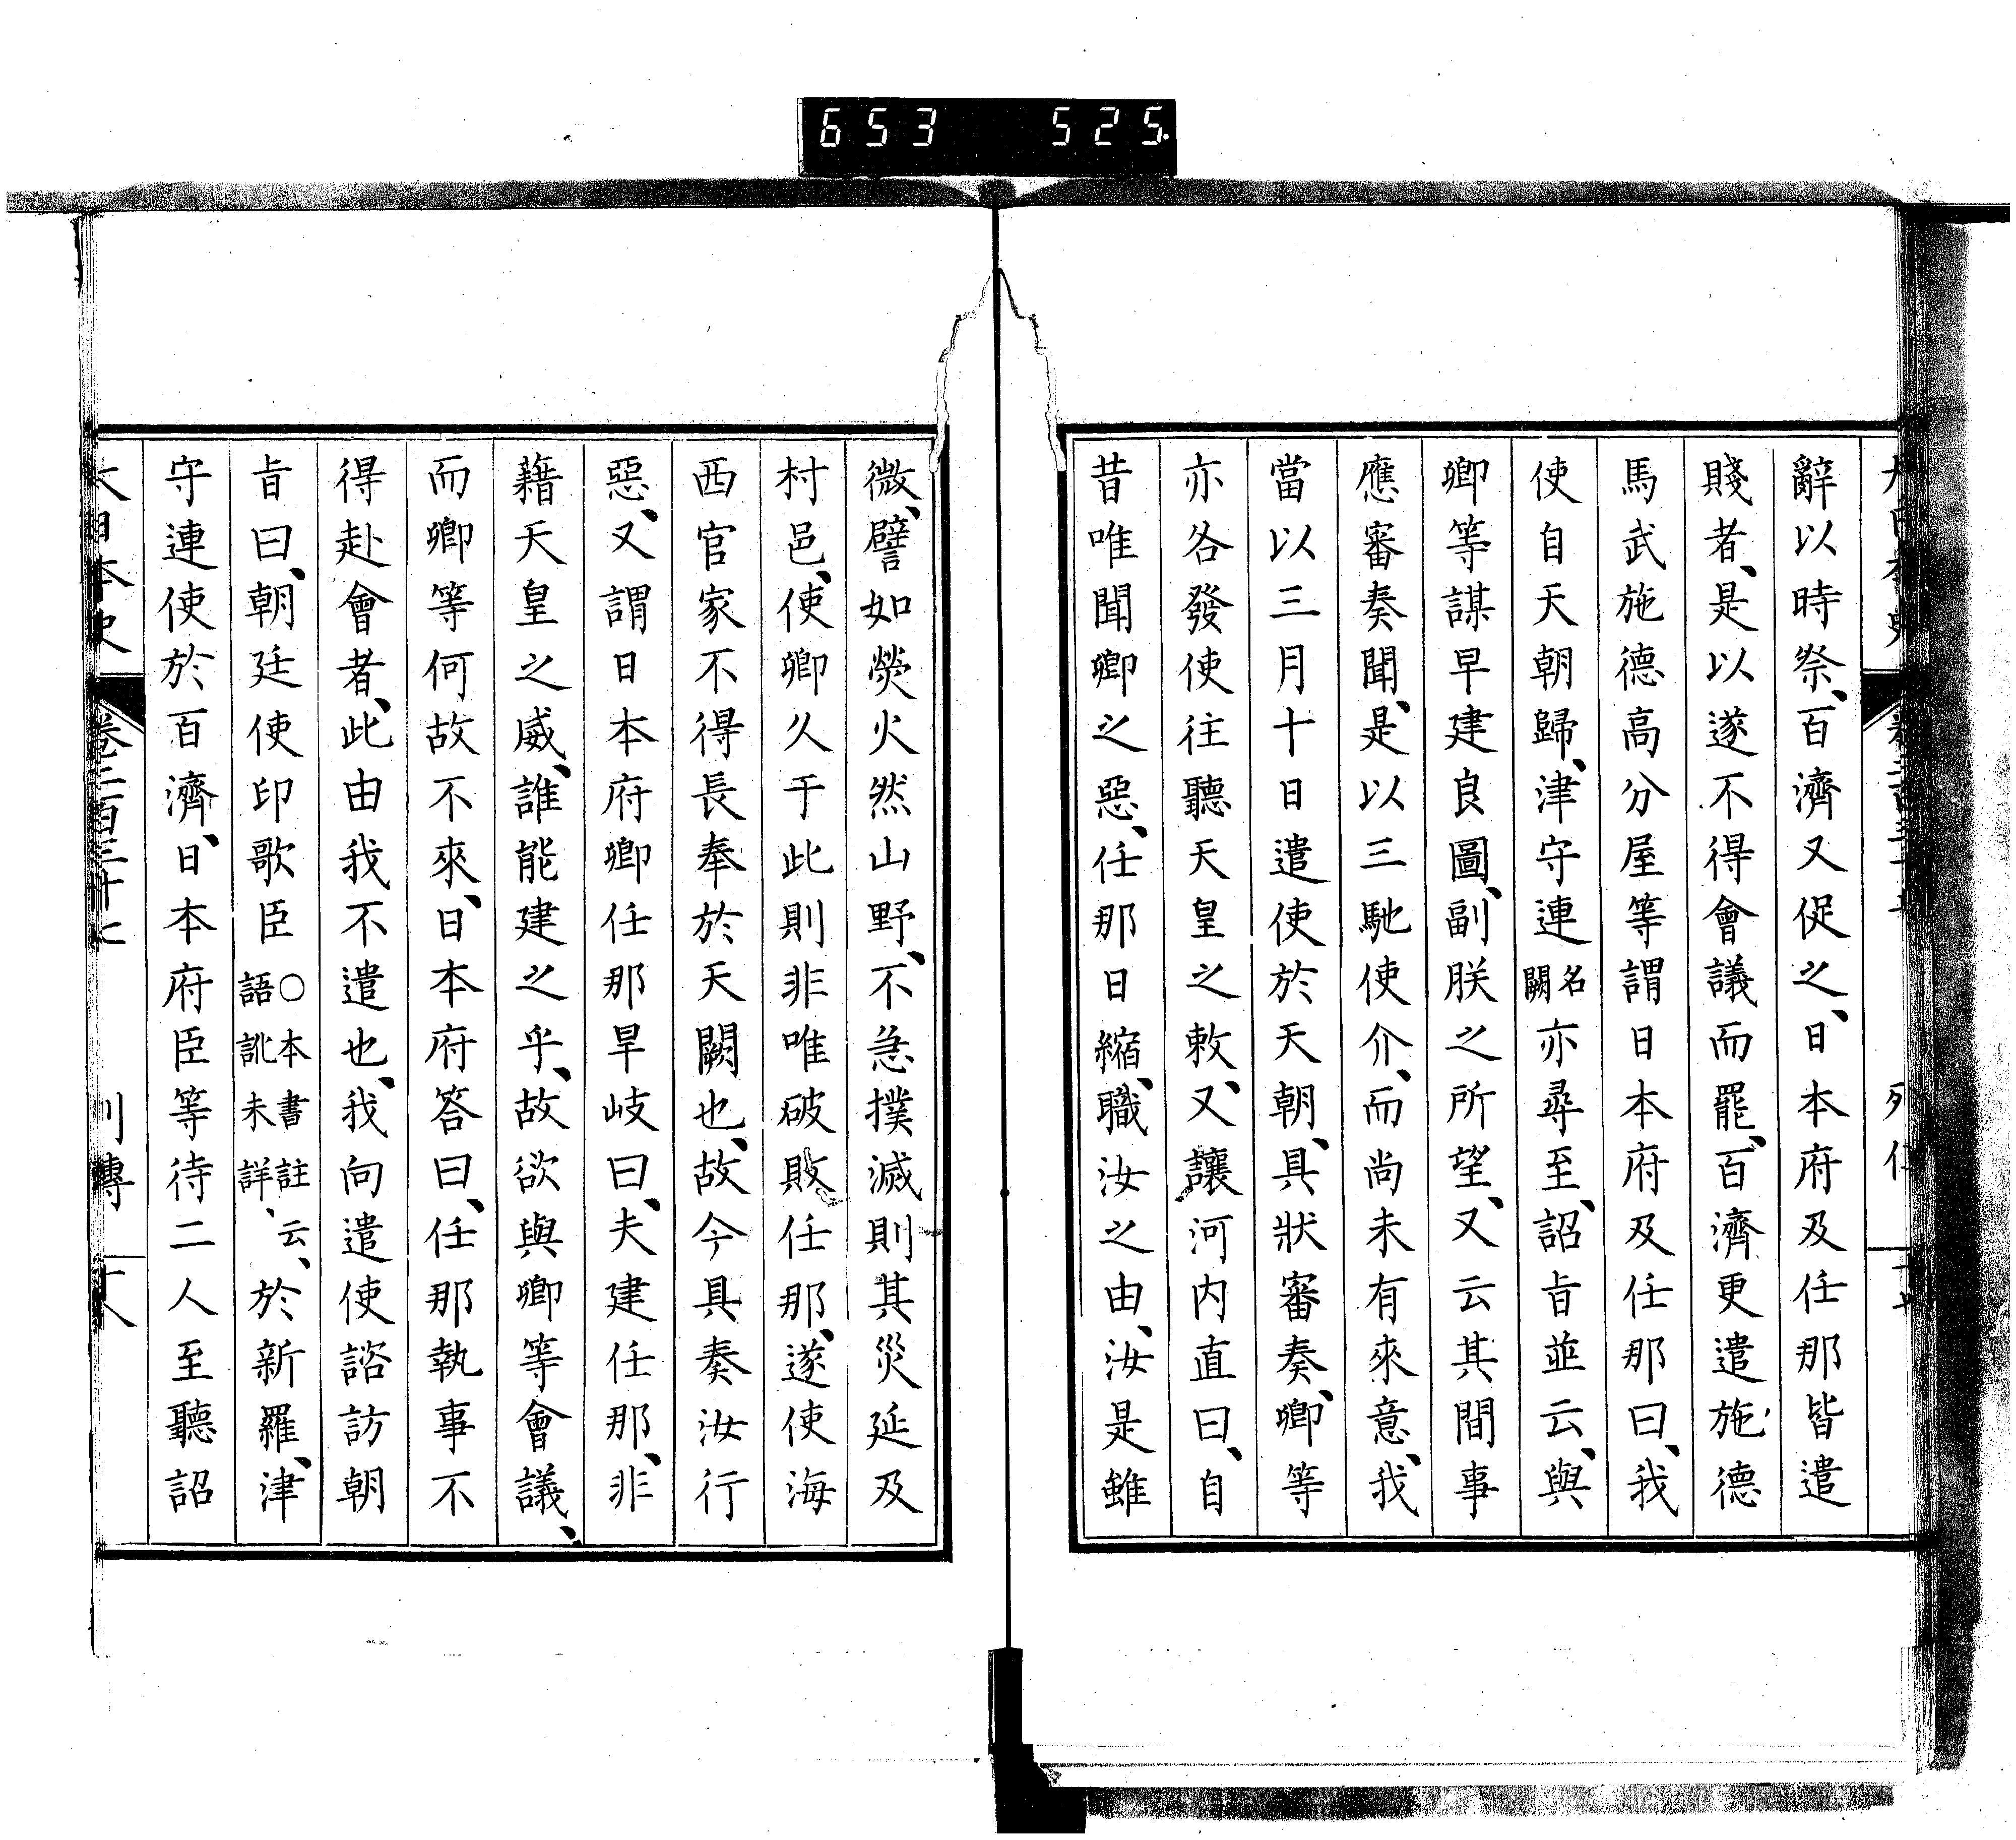 653 525
辭以時祭、百濟又促之、日本府及任那皆遣
賤者、是以遂不得會議而罷、百濟更遣施德
馬武施德高分屋等謂日本府及任那曰、我
使自天朝歸、津守連名闕亦尋至、詔旨並云、與
卿等謀早建良圖、副朕之所望、又云其間事
應審奏聞、是以三馳使介、而尚未有來意、我
當以三月十日遣使於天朝、具狀審奏、卿等
亦各發使往聽天皇之敕、又讓河内直曰、自
昔唯聞卿之惡、任那日縮、職汝之由、汝是雖
微、譬如熒火然山野、不急撲滅則其災延及
村邑、使卿久于此則非唯破敗任那、遂使海
西官家不得長奉於天闕也、故今具奏汝行
惡、又謂日本府卿任那旱岐曰、夫建任那、非
藉天皇之威、誰能建之乎、故欲與卿等會議、
而卿等何故不來、日本府答曰、任那執事不
得赴會者、此由我不遣也、我向遣使諮訪朝
旨曰、朝廷使印歌臣○本書註云、語訛未詳、於新羅、津
守連使於百濟、日本府臣等待二人至聽詔
大日本史 卷二百三十七 列傳 十八